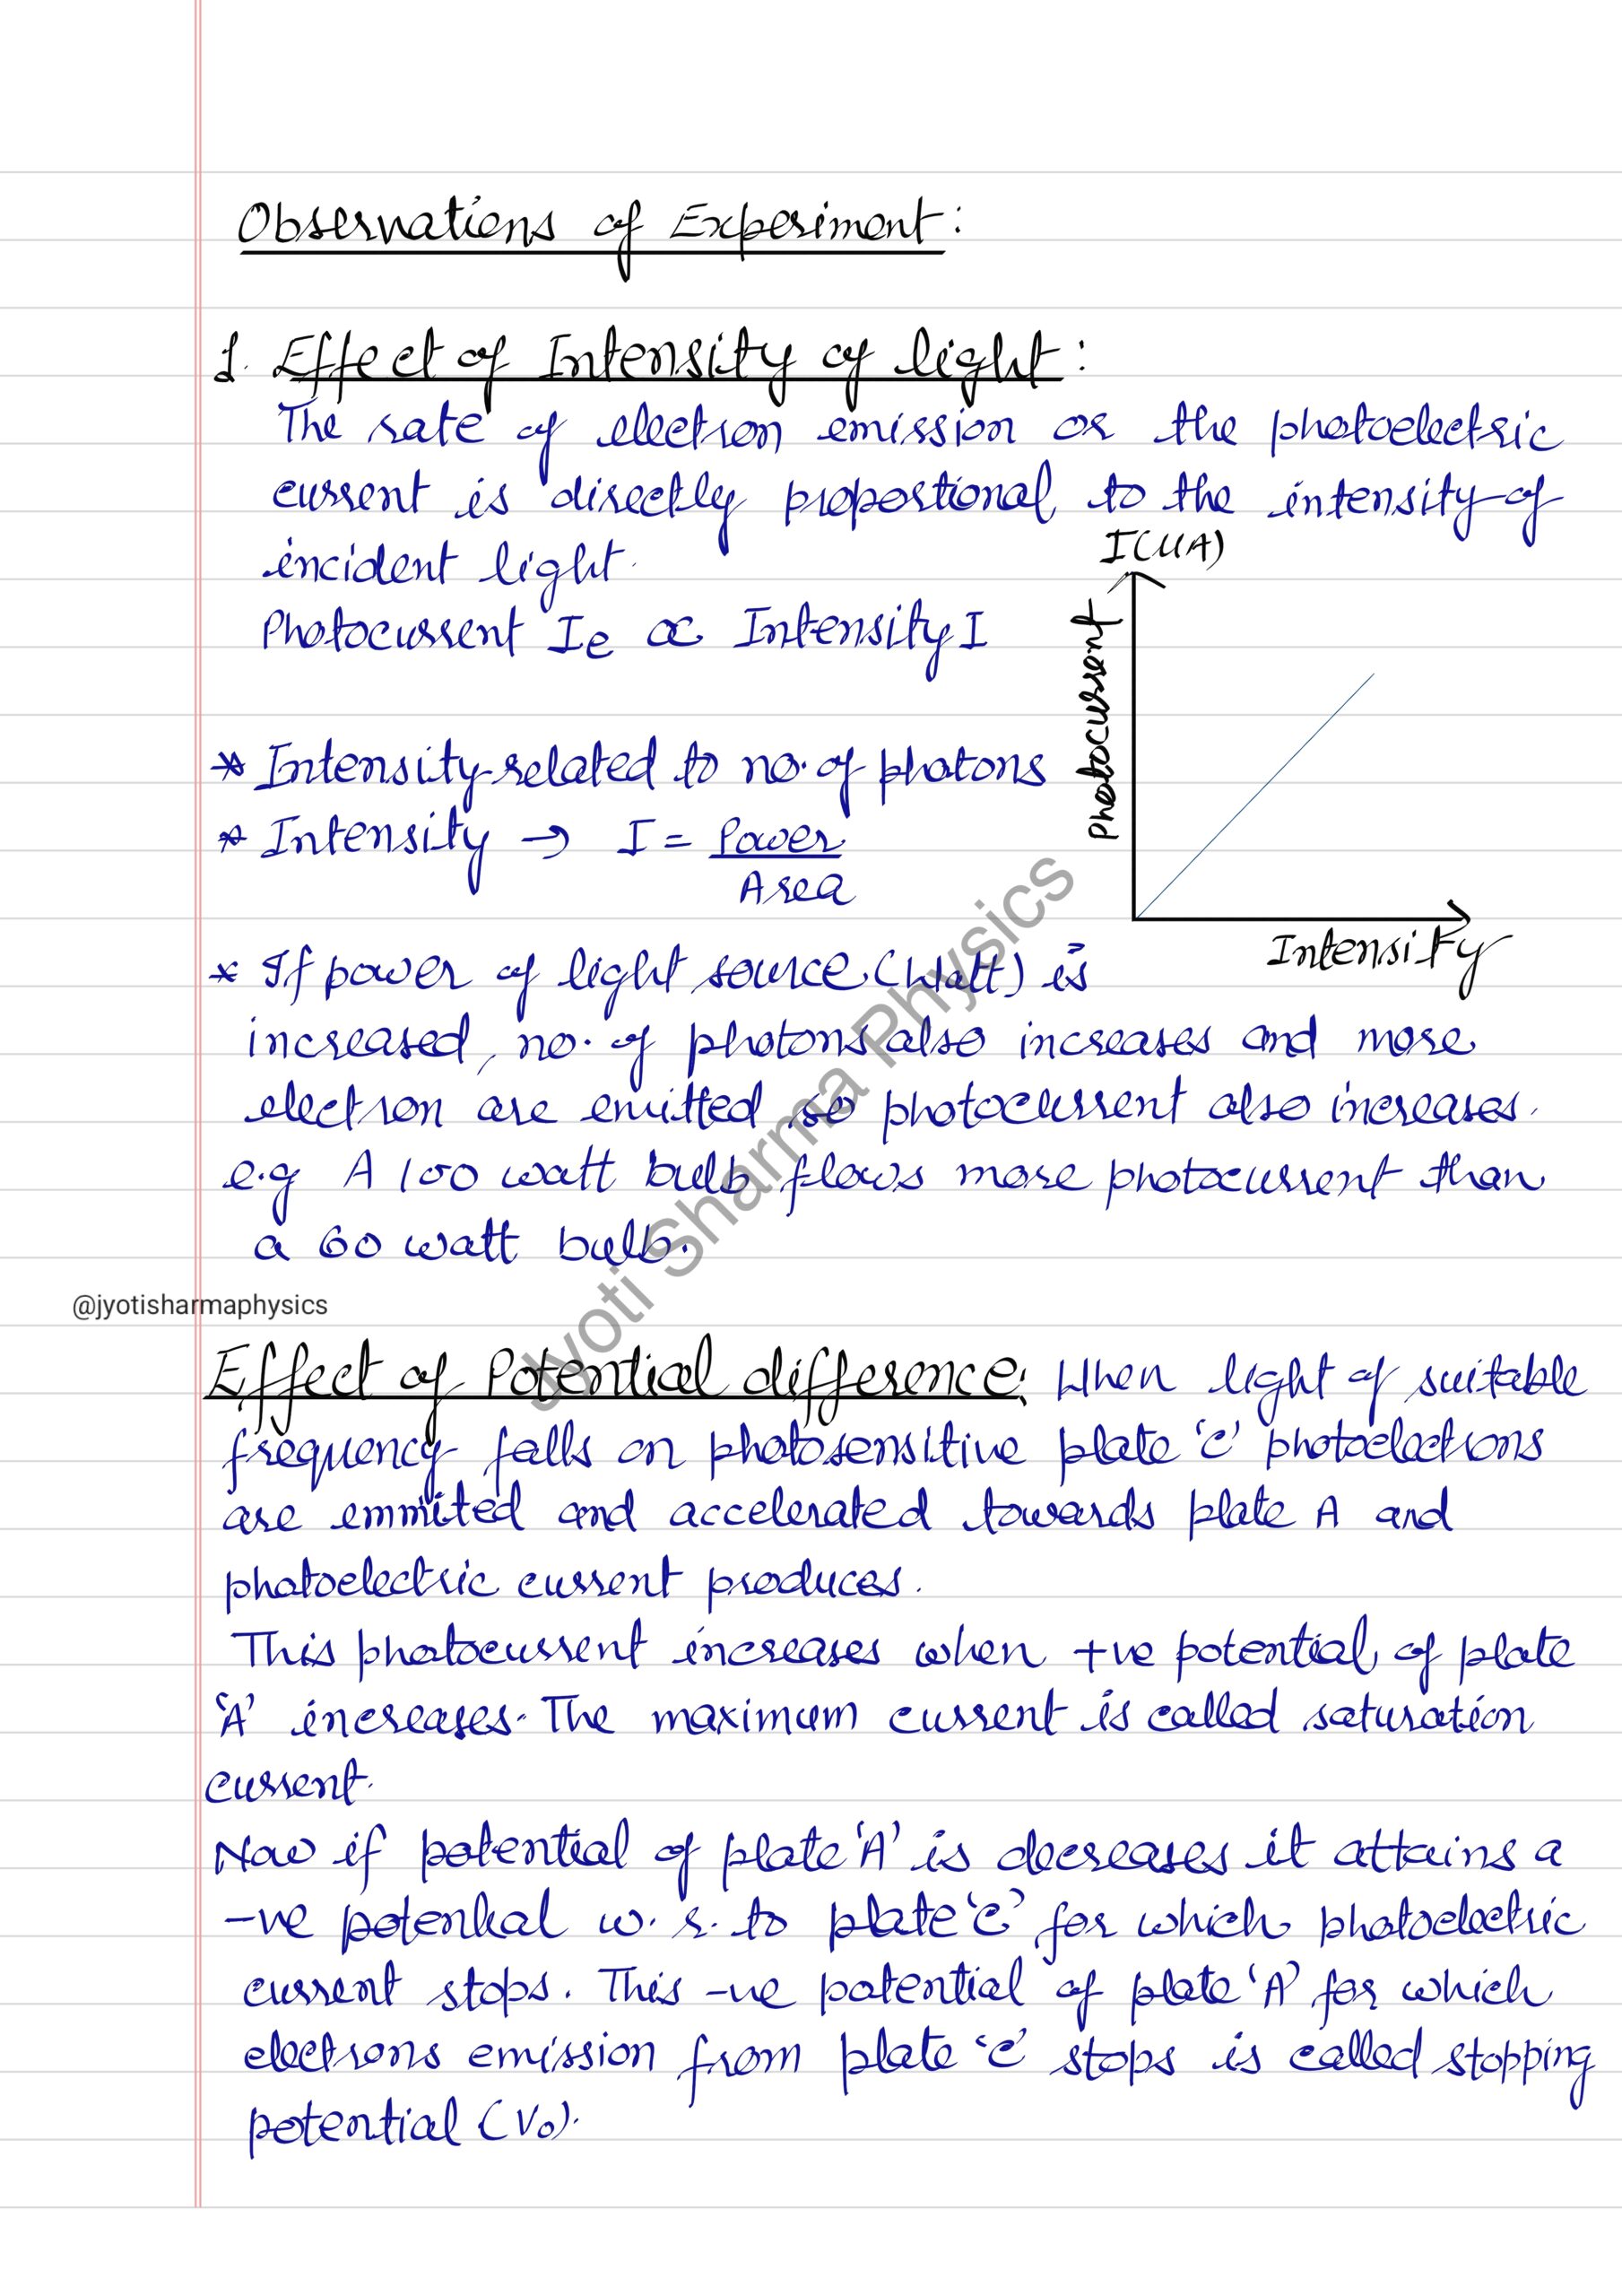 Observations of Experiment:
1. Effect of Intensity of light:
The rate of electron emission or the photoelectric
current is directly proportional to the intensity of
incident light.
I(μA)
Photocurrent Ie ∝ Intensity I
Photocurrent
* Intensity related to no. of photons
* Intensity → I = Power
Area
Intensity
* If power of light source (Watt) is
increased, no. of photons also increases and more
electron are emitted so photocurrent also increases.
e.g A 100 watt bulb flows more photocurrent than
a 60 watt bulb.
@jyotisharmaphysics
Jyoti Sharma Physics
Effect of Potential difference: When light of suitable
frequency falls on photosensitive plate 'C' photoelectrons
are emmited and accelerated towards plate A and
photoelectric current produces.
This photocurrent increases when +ve potential of plate
'A' increases. The maximum current is called saturation
current.
Now if potential of plate 'A' is decreases it attains a
-ve potential w. r. to plate 'C' for which photoelectric
current stops. This -ve potential of plate 'A' for which
electrons emission from plate 'C' stops is called stopping
potential (V₀).